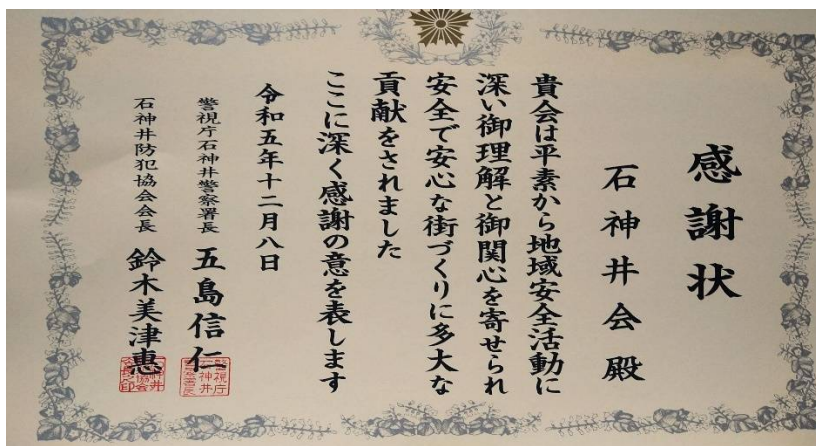 感謝状
石神井会殿
貴会は平素から地域安全活動に
深い御理解と御関心を寄せられ
安全で安心な街づくりに多大な
貢献をされました
ここに深く感謝の意を表します
令和五年十二月八日
警視庁石神井警察署長 五島信仁
石神井防犯協会会長 鈴木美津惠